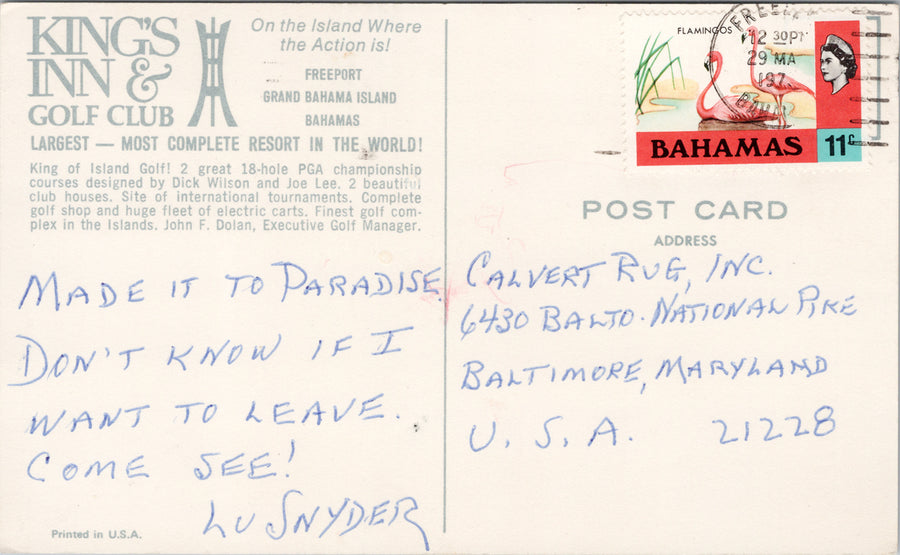 KING'S
INN &
GOLF CLUB
On the Island Where
the Action is!
FREEPORT
GRAND BAHAMA ISLAND
BAHAMAS
LARGEST — MOST COMPLETE RESORT IN THE WORLD!
King of Island Golf! 2 great 18-hole PGA championship
courses designed by Dick Wilson and Joe Lee. 2 beautiful
club houses. Site of international tournaments. Complete
golf shop and huge fleet of electric carts. Finest golf com-
plex in the Islands. John F. Dolan, Executive Golf Manager.
MADE IT TO PARADISE
DON'T KNOW IF I
WANT TO LEAVE.
COME SEE!
LU SNYDER
Printed in U.S.A.
FLAMINGOS
12 30PM
29 MA
197
BAHAMAS 11c
POST CARD
ADDRESS
CALVERT RUG, INC.
6430 BALTO. NATIONAL PIKE
BALTIMORE, MARYLAND
U. S. A. 21228